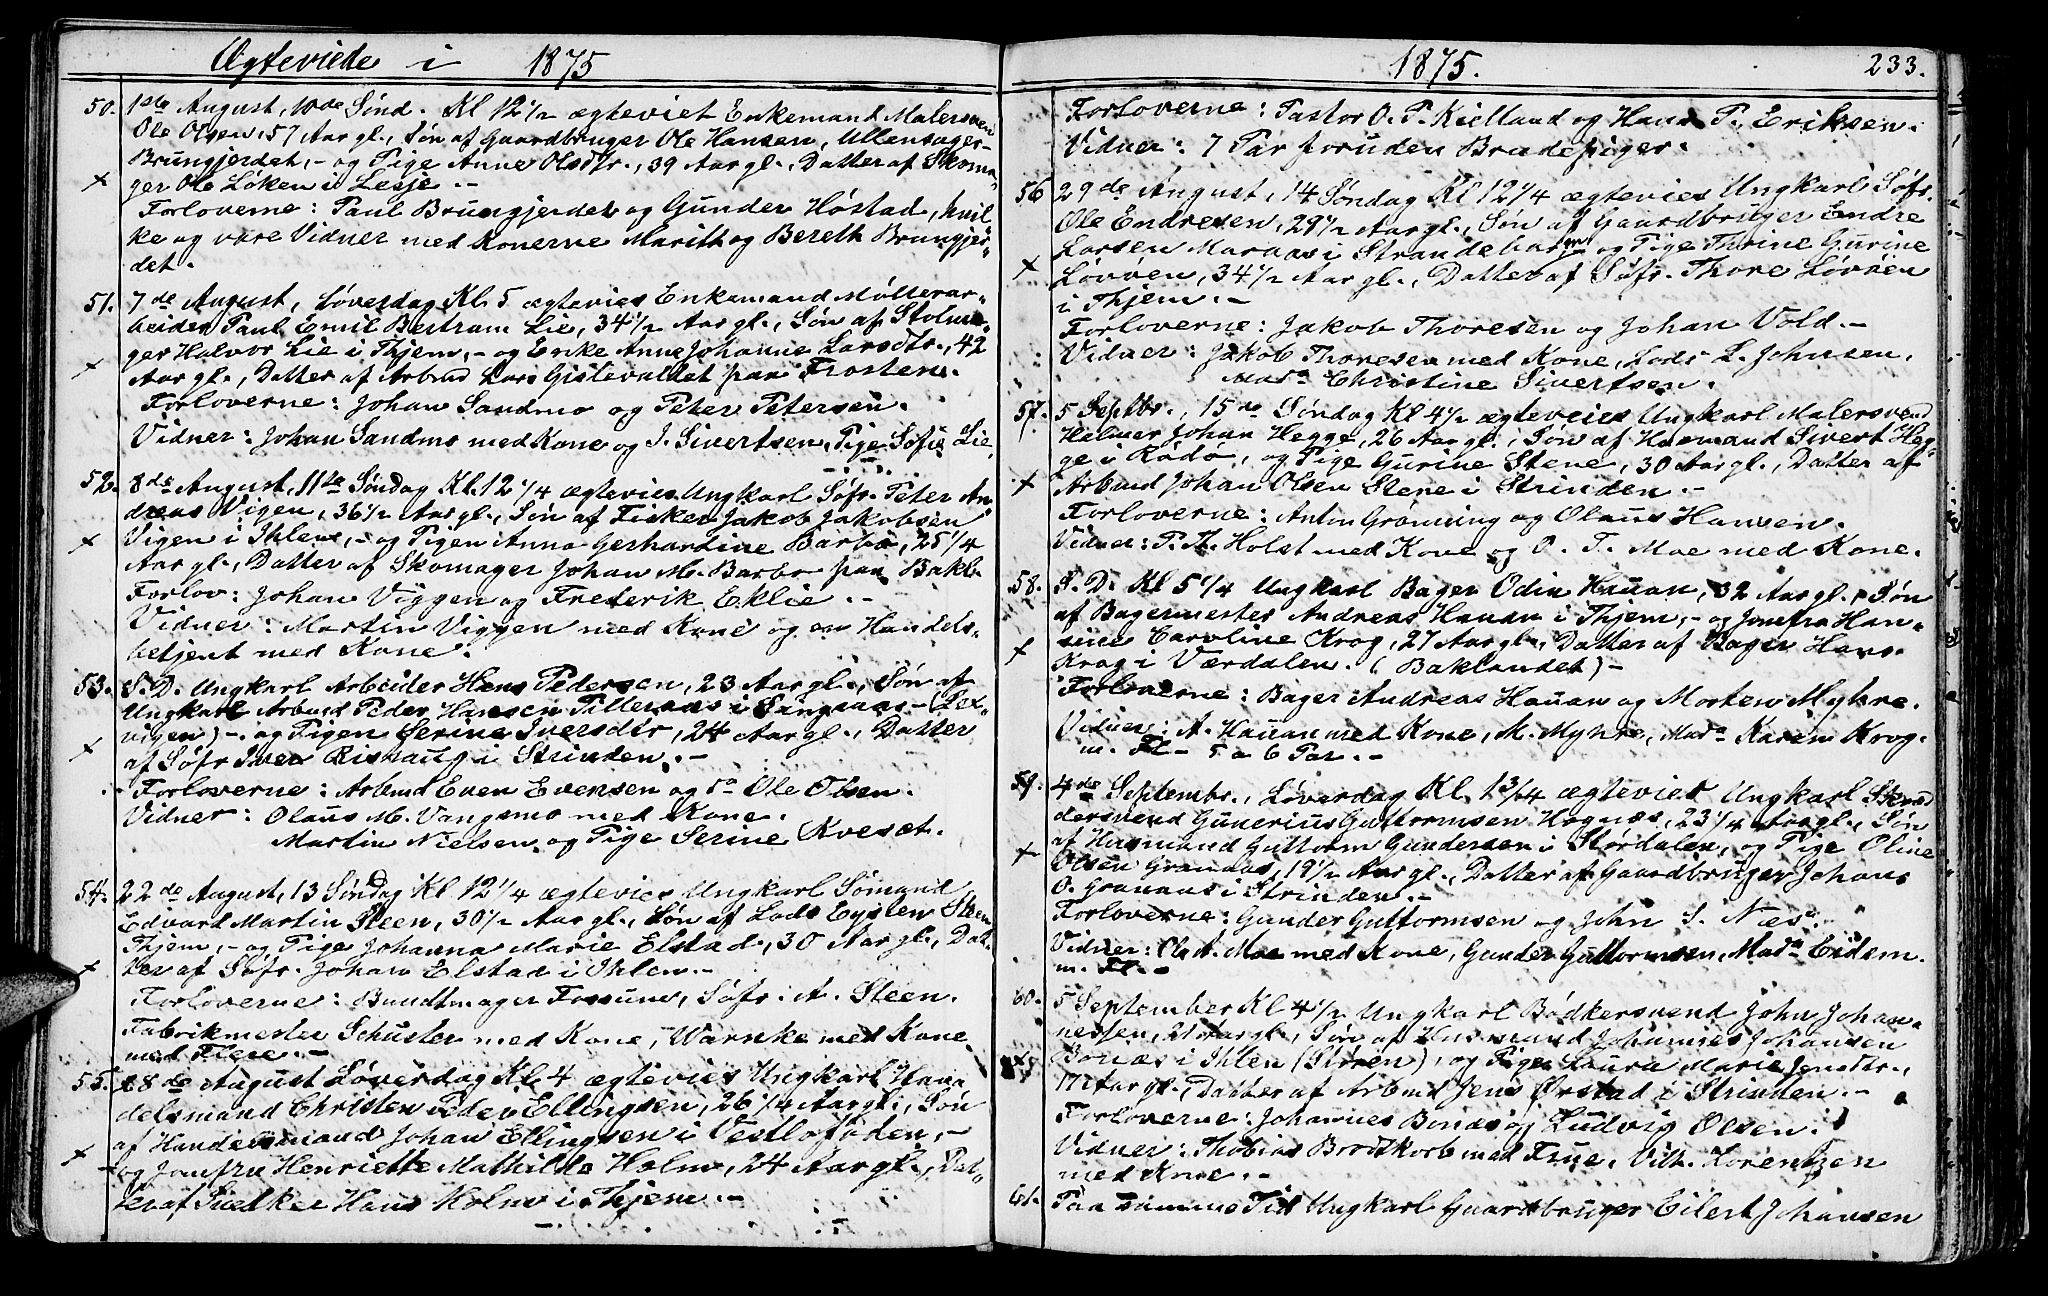 Ægteviede i 1875
50. 1ste August, 10de Sönd. Kl 12 1/2 ægteviet Enkemand Malersven
Ole Olsen, 57 Aar gl., Søn af Gaardbruger Ole Hansen, Ullensager-
Brungjerdet, - og Pige Anne Olsdtr., 39 Aar gl., Datter af Skoma-
ger Ole Løken i Lesje. -
Forloverne: Paul Brungjerdet og Gunder Høstad, hvil
ke og vare Vidner med Konerne Marith og Bereth Brungjer-
det.
51. 7de August, Løverdag Kl. 5 ægtevies Enkemand Møllerar-
beider Paul Emil Bertram Lie, 34 1/2 Aar gl., Søn af Stolma-
ger Halvor Lie i Thjem, - og Enke Anne Johanne Larsdtr., 42
Aar gl., Datter af Arbmd Lars Gistevoldet paa Frosten.
Forloverne: Johan Sandmo og Peter Petersen.
Vidner: Johan Sandmo med Kone og J. Sivertsen, Pige Sofie Lie.
52. 8de August, 11te Søndag Kl. 12 1/4 ægtevies Ungkarl Søfr. Peter An-
dreas Vigen, 36 1/2 Aar gl., Søn af Fisker Jakob Jakobsen
Vigen i Ihlen, - og Pigen Anna Gerhardine Barbo, 25 1/4
Aar gl., Datter af Skomager Johan M. Barbo paa Bakl.
Forlov: Johan Viggen og Frederik Eklie. -
Vidner: Martin Viggen med Kone og en Handels-
betjent med Kone.
53. S. D. Ungkarl Arbeider Hans Pedersen, 23 Aar gl., Søn af
Ungkarl Arbmd Peder Hansen Pilleraas i Singsaas - (Lex-
vigen) - og Pigen Serine Iversdtr, 24 Aar gl., Datter
af Søfr Iver Rishaug i Strinden. -
Forloverne: Arbmd Even Evensen og do Ole Olsen.
Vidner: Olaus M. Vangsmo med Kone.
Martin Nielsen og Pige Serine Kvesæt.
54. 22de August, 13 Søndag Kl 12 1/4 ægtevies Ungkarl Sømand
Edvart Martin Steen, 30 1/2 Aar gl., Søn af Lods Eysten Steen
Thjem, - og Pige Johanna Marie Elstad, 30 Aar gl., Dat-
ter af Søfr. Johan Elstad i Ihlen. -
Forloverne: Bundtmager Fossum, Søfr. A. Steen.
Fabrikmester Schuster med Kone, Warnke med Kone
med Flere. -
55. 28de August Løverdag Kl. 4 ægtevies Ungkarl Han-
delsmand Christen Peder Ellingsen, 26 1/4 Aar gl., Søn
af Handelsmand Johan Ellingsen i Vestlofoden, -
og Jomfru Henriette Mathilde Holm, 24 Aar gl., Dat-
ter af Snedker Hans Holm i Thjem. -
1875. 233.
Forloverne: Pastor O. P. Kielland og Hans P. Eriksen.
Vidner: 7 Par foruden Brudepiger.
56 29de August, 14 Søndag Kl 12 1/4 ægtevies Ungkarl Søfr.
Ole Endresen, 29 1/2 Aar gl., Søn af Gaardbruger Endre
Larsen Maraas i Strandebarm og Pige Thrine Gurine
Løvøen, 34 1/2 Aar gl., Datter af Søfr. Thore Løvøen
i Thjem. -
Forloverne: Jakob Thoresen og Johan Vold. -
Vidner: Jakob Thoresen med Kone, Lods L. Johnsen,
Mada Christine Sivertsen.
57. 5 Septbr., 15de Søndag Kl 4 1/2 ægtevies Ungkarl Malersvend
Helmer Johan Hegge, 26 Aar gl., Søn af Husmand Sivert Heg-
ge i Rødø, og Pige Gurine Stene, 30 Aar gl., Datter af
Arbmd Johan Olsen Stene i Strinden. -
Forloverne: Anton Grønning og Olaus Hansen.
Vidner: P. A. Holst med Kone og O. T. Moe med Kone.
58. S. D. Kl 5 1/4 Ungkarl Bager Odin Hauan, 32 Aar gl., Søn
af Bagermester Andreas Hauan i Thjem, - og Jomfru Han-
sine Caroline Krog, 27 Aar gl., Datter af Bager Hans
Krog i Værdalen. (Baklandet) -
Forloverne: Bager Andreas Hauan og Morten Myhre.
Vidner: A. Hauan med Kone, M. Myhre, Mada Karen Krog.
m. Fl - 5 a 6 Par. -
59. 4de Septembr., Løverdag Kl. 1 3/4 ægteviet Ungkarl Skræd
dersvend Gunerius Guttormsen Hognæs, 23 1/4 Aar gl., Søn
af Husmand Guttorm Gundersen i Størdalen, og Pige Oline
Olsen Granaas, 19 1/2 Aar gl., Datter af Gaardbruger Johans
O. Granaas i Strinden. -
Forloverne: Gunder Guttormsen og John S. Næss.
Vidner: Ole A. Moe med Kone, Gunder Guttormsen, Mada Eidem
m. Fl. -
60. 5 September Kl 4 1/2 Ungkarl Bødkersvend John Johan-
nessen, 21 Aar gl., Søn af Husmand Johannes Johansen
Bonæs i Ihlen, og Pigen Laura Marie Jensdtr.,
17 Aar gl., Datter af Arbmd Jens Ørstad i Strinden. -
Forloverne: Johannes Bonæs og Ludvig Olsen.
Vidner: Thobias Brodtkorb med Frue, Vilh. Lorentzen
med Kone. -
61. Paa samme Tid Ungkarl Gaardbruger Eilert Johansen